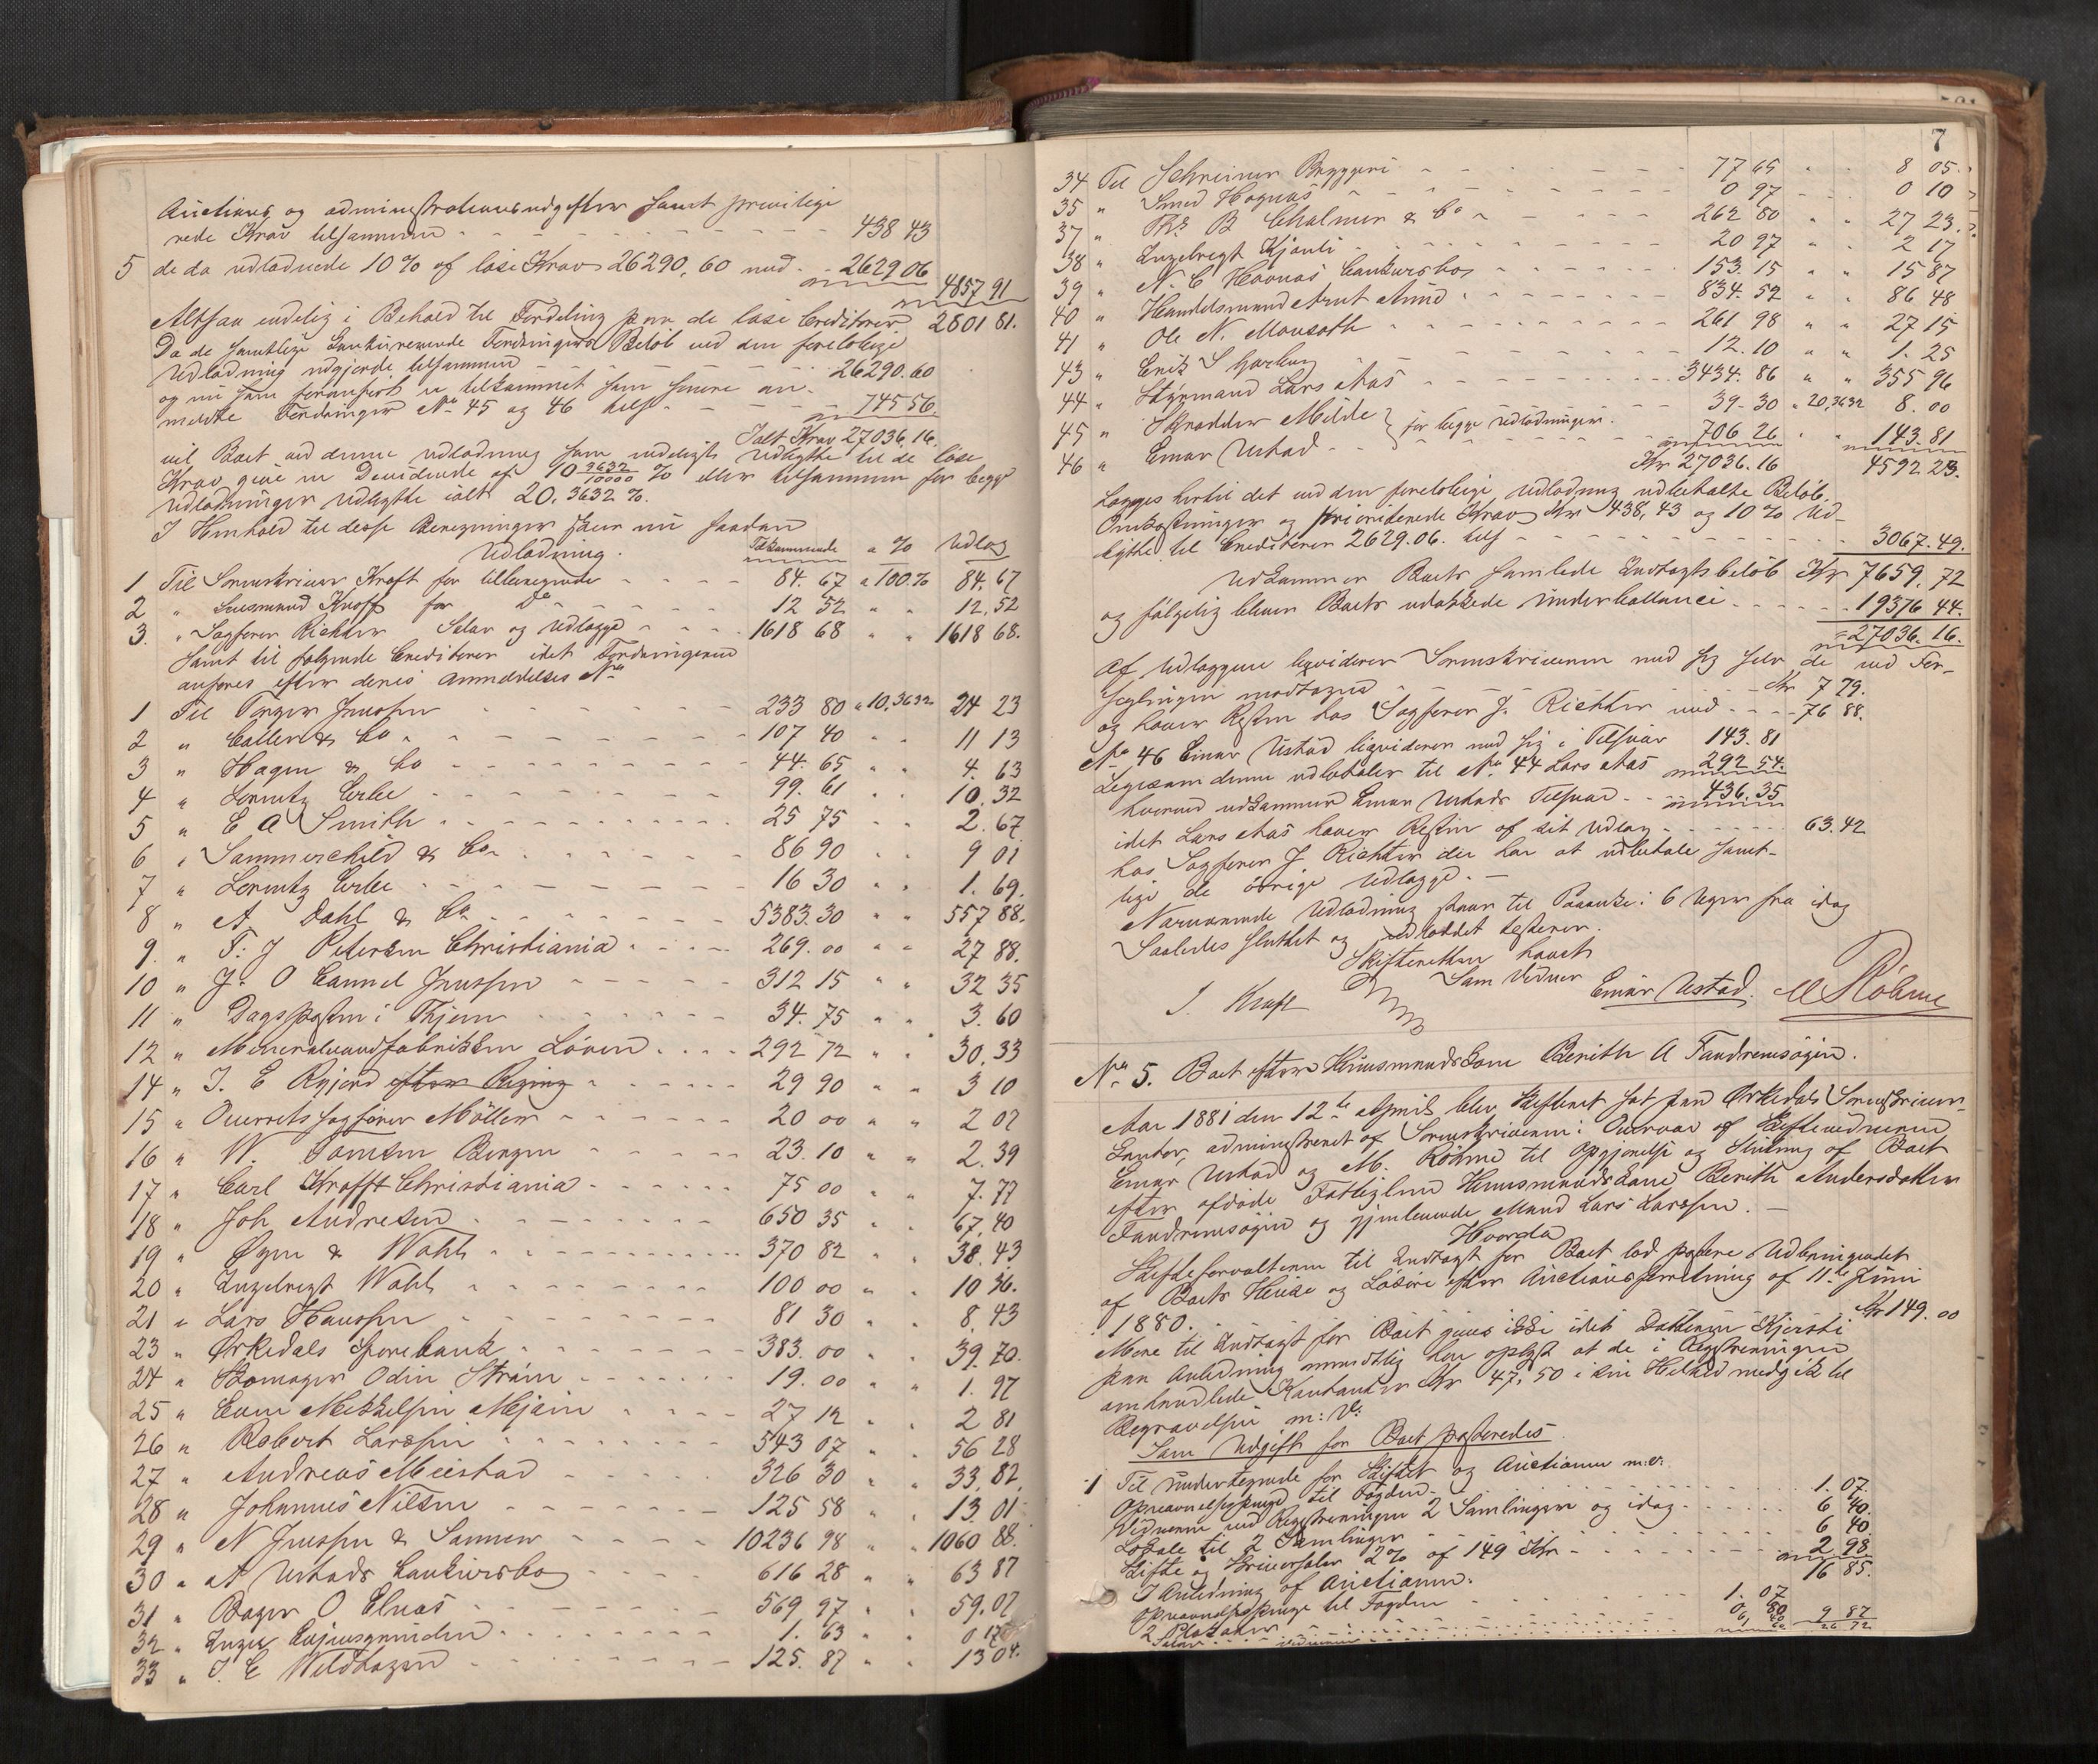 Auctions og administrationsudgifter samt privilige
rede Krav tilsammen 438 43
5 de da udloddede 10% af löse Krav 26290,60 med 2629 06
4857 91
Altsaa endelig i Behold til Fordeling paa de löse Creditorer 2801 81.
Da de samtlige Fordringers Belöb ved den foreløbige
Udlodning udgjorde tilsammen 26290.60
og nu som foranfört er tilkommet som senere an-
meldte Fordringer No 45 og 46 tils 745 56.
Ialt Krav 27036.16.
vil Boet ved denne Udlodning som endeligt Udbytte til de löse
Krav give en Dividende af 10 3632/10000 % eller tilsammen for begge
Udlodninger Udbytte ialt 20.3632 %.
I Henhold til disse Beregninger skeer nu saadan
Udlodning. Tilkommende a % Udlæg
1 Til Sorenskriver Kraft for tillæggende 84.67 a 100% 84.67
2 " Lensmand Knoff for Do 12 52 " " 12.52
3. " Sagförer Richter Salær og Udlægge 1618 68 " " 1618 68.
samt til følgende Creditorer idet Fordringerne
anføres efter deres Anmeldelses No
1 Til Torger Jenssen 233 80 a 10.3632 24 23
2 " Collen & Co 107 40 " " 11 13
3 " Hagen & Co 44.65 " " 4.63
4 " Lorentz Erbe 99.61 " " 10.32
5 " E A Smith 25 75 " " 2.67
6 " Sommerschild & Co 86 90 " " 9 01
7 " Lorentz Erbe 16 30 " " 1.69.
8 " A Dahl & Co 5383.30 " " 557 88.
9. " T. J Petersen Christiania 269.00 " " 27 88.
10 " J. O Jenssen 312 15 " " 32 35
11 " Dagsposten i Thjem 34.75 " " 3.60
12 " Mineralvandfabrikken Löven 292 72 " " 30.33
14 " J. E Ryjord efter Reging 29 90 " " 3 10
15 " Overretssagförer Möller 20 00 " " 2 07
16 " W. Jansen Bergen 23.10 " " 2.39
17 " Carl Krafft Christiania 75 00 " " 7.77
18 " Joh Andresen 650 35 " " 67.40
19 " Øyen & Wahl 370 82 " " 38.43
20 " Ingebregt Wahl 100 00 " " 10 36.
21 " Lars Hanssen 81 30 " " 8.43
23 " Ørkedals Sparebank 383.00 " " 39.70.
24 " Skomager Odin Ström 19.00 " " 1.97
25 " Even Mikkelsen Mjöen 27 12 " " 2 81
26 " Robert Larssen 543 07 " " 56 28
27 " Andreas Meistad 326 30 " " 33.82
28 " Johannes Nilsen 125 58 " " 13.01
29 " N Jenssen & Sønner 10236 98 " " 1060 88.
30 " A Ustads Concursbo 616 28 " " 63 87
31 " Bager O Elnæs 569 97 " " 59.07
32 " 1.63 " " 0 17
33 " J. E Wildhagen 125.87 " " 13 04.
7
34 Til Schreiner Bryggeri 77 65 " " 8 05.
35 " Smed Hognæs 0 97 0 10
37 " Ths B Chalmer & Co 262 80 " " 27 23.
38 " Ingebregt Kjønli 20 97 " " 2 17
39 " N. C Havnæs Concursbo 153.15 " " 15 87
40 " Handelsmand Arnt Amd 834.52 " " 86 48
41 " Ole N. Monsath 261 98 " " 27 15
43 " Erik S Garberg 12.10 " " 1.25
44 " Styrmand Lars Aas 3434.86 " " 355 96
45 " Skrædder Milde } for begge Udlodninger. 39-30 " 20,3632 8.00
46 " Einar Ustad 706 26 " " 143.81
Kr 27036.16 4592 23.
Lægges hertil det ved den foreløbige Udlodning udbetalte Belöb,
Omkostninger og prioriterede Krav Kr 438,43 og 10% Ud-
bytte til Creditorer 2629.06. tils 3067.49.
udkommer Boets samlede Indtægtsbeløb Kr 7659.72
og følgelig bliver Boets udækkede Underballance 19376 44.
27036.16.
Af Udlæggene liqviderer Sorenskriveren med sig selv de ved For-
seglingen modtagne Kr 7 79.
og haver Resten hos Sagförer J. Richter med 76 88.
No 46 Einar Ustad liqviderer med sig i Tilsvar 143.81
Ligesom denne udbetaler til No 44 Lars Aas 292 54.
hvorved udkommer Einar Ustads Tilsvar 436.35
idet Lars Aas haver Resten af sit Udlæg 63.42
hos Sagförer J Richter der har at udbetale samt-
lige de øvrige Udlægge. —
Nærværende Udlodning staar til Paaanke i 6 Uger fra idag
Saaledes sluttet og udloddet testerer.
Skifteretten hævet
Som Vidner
J. Kraft Einar Ustad. M Röhme
No 5. Boet efter Huusmandskone Berith A Fandremsøgen.
Aar 1881 den 12te April blev Skifteret sat paa Ørkedals Sorenskriver-
kontor, administreret af Sorenskriveren i Overvær af Skiftevidnerne
Einar Ustad og M. Röhme til Opgjørelse og Slutning af Boet
efter afdøde Fattiglem Huusmandskone Berith Andersdatter
Fandremsøgen og gjenlevende Mand Lars Larssen. —
Hvorda
Skifteforvalteren til Indtægt for Boet lod postere Udbringendet
af Boets Heuse og Løsøre efter Auctionsforretning af 11te Juni
1880. Kr 149.00
Mere til Indtægt for Boet gives ikke idet Datteren Kjersti
paa Anledning mundtlig har oplyst at de i Registreringen
omhandlede Kontanter Kr 47,50 i sin Helhed medgik til
Begravelsen m: V:
Som Udgift for Boet posteredes.
1 Til undertegnede for Skiftet og Auctionen m.v:
Opnævnelsespenge til Fogden 1.07.
Vidnerne ved Registreringen 2 Samlinger og idag 6 40.
Lokale til 2 Samlinger 6 40
Skifte og Skriversalær 2% af 149 Kr 2 98.
16 85.
I Anledning af Auctionen:
Opnævnelsespenge til Fogden 1.07
2 Plakater 0, 80
9 87
26 72